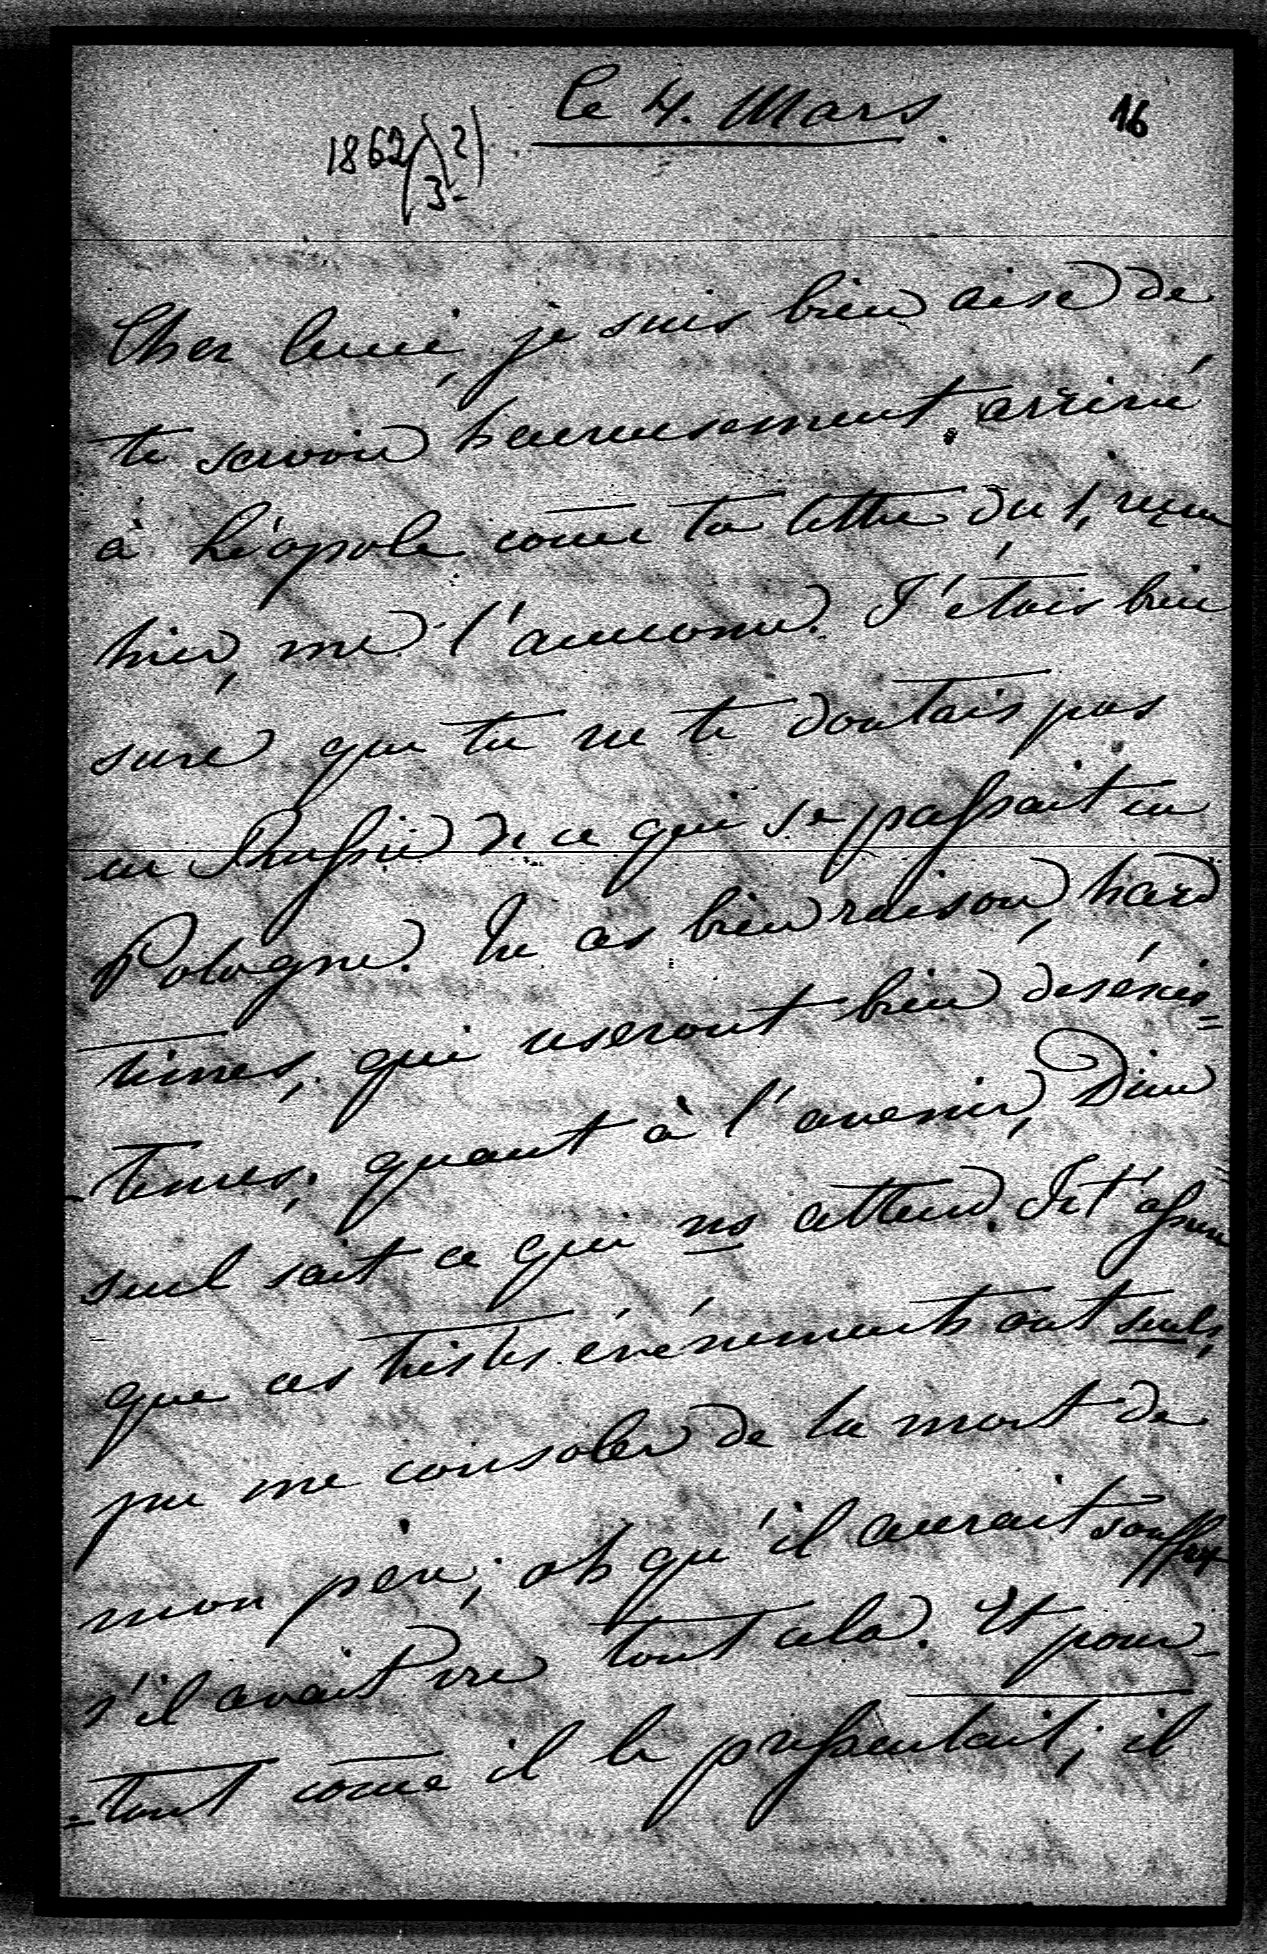 le 4. Mars.
16
1862(?)
(3-
Cher ami, je suis bien aise de
te savoir heureusement arrivé
à Léopole come ta lettre du 1, reçue
hier, me l'annonce. J'étais bien
sure que tu ne te doutais pas
en Prussie de ce qui se passait en
Pologne. Tu as bien raison, hard
times, qui useront bien des éxis=
=tences; quant à l'avenir, Dieu
seul sait ce qui ns attend. Je t'assure
que ces tristes événements ont seuls,
pu me consoler de la mort de
mon père; oh qu'il aurait souffert
s'il avait vu tout cela. Et pour-
=tant come il le pressentait; il